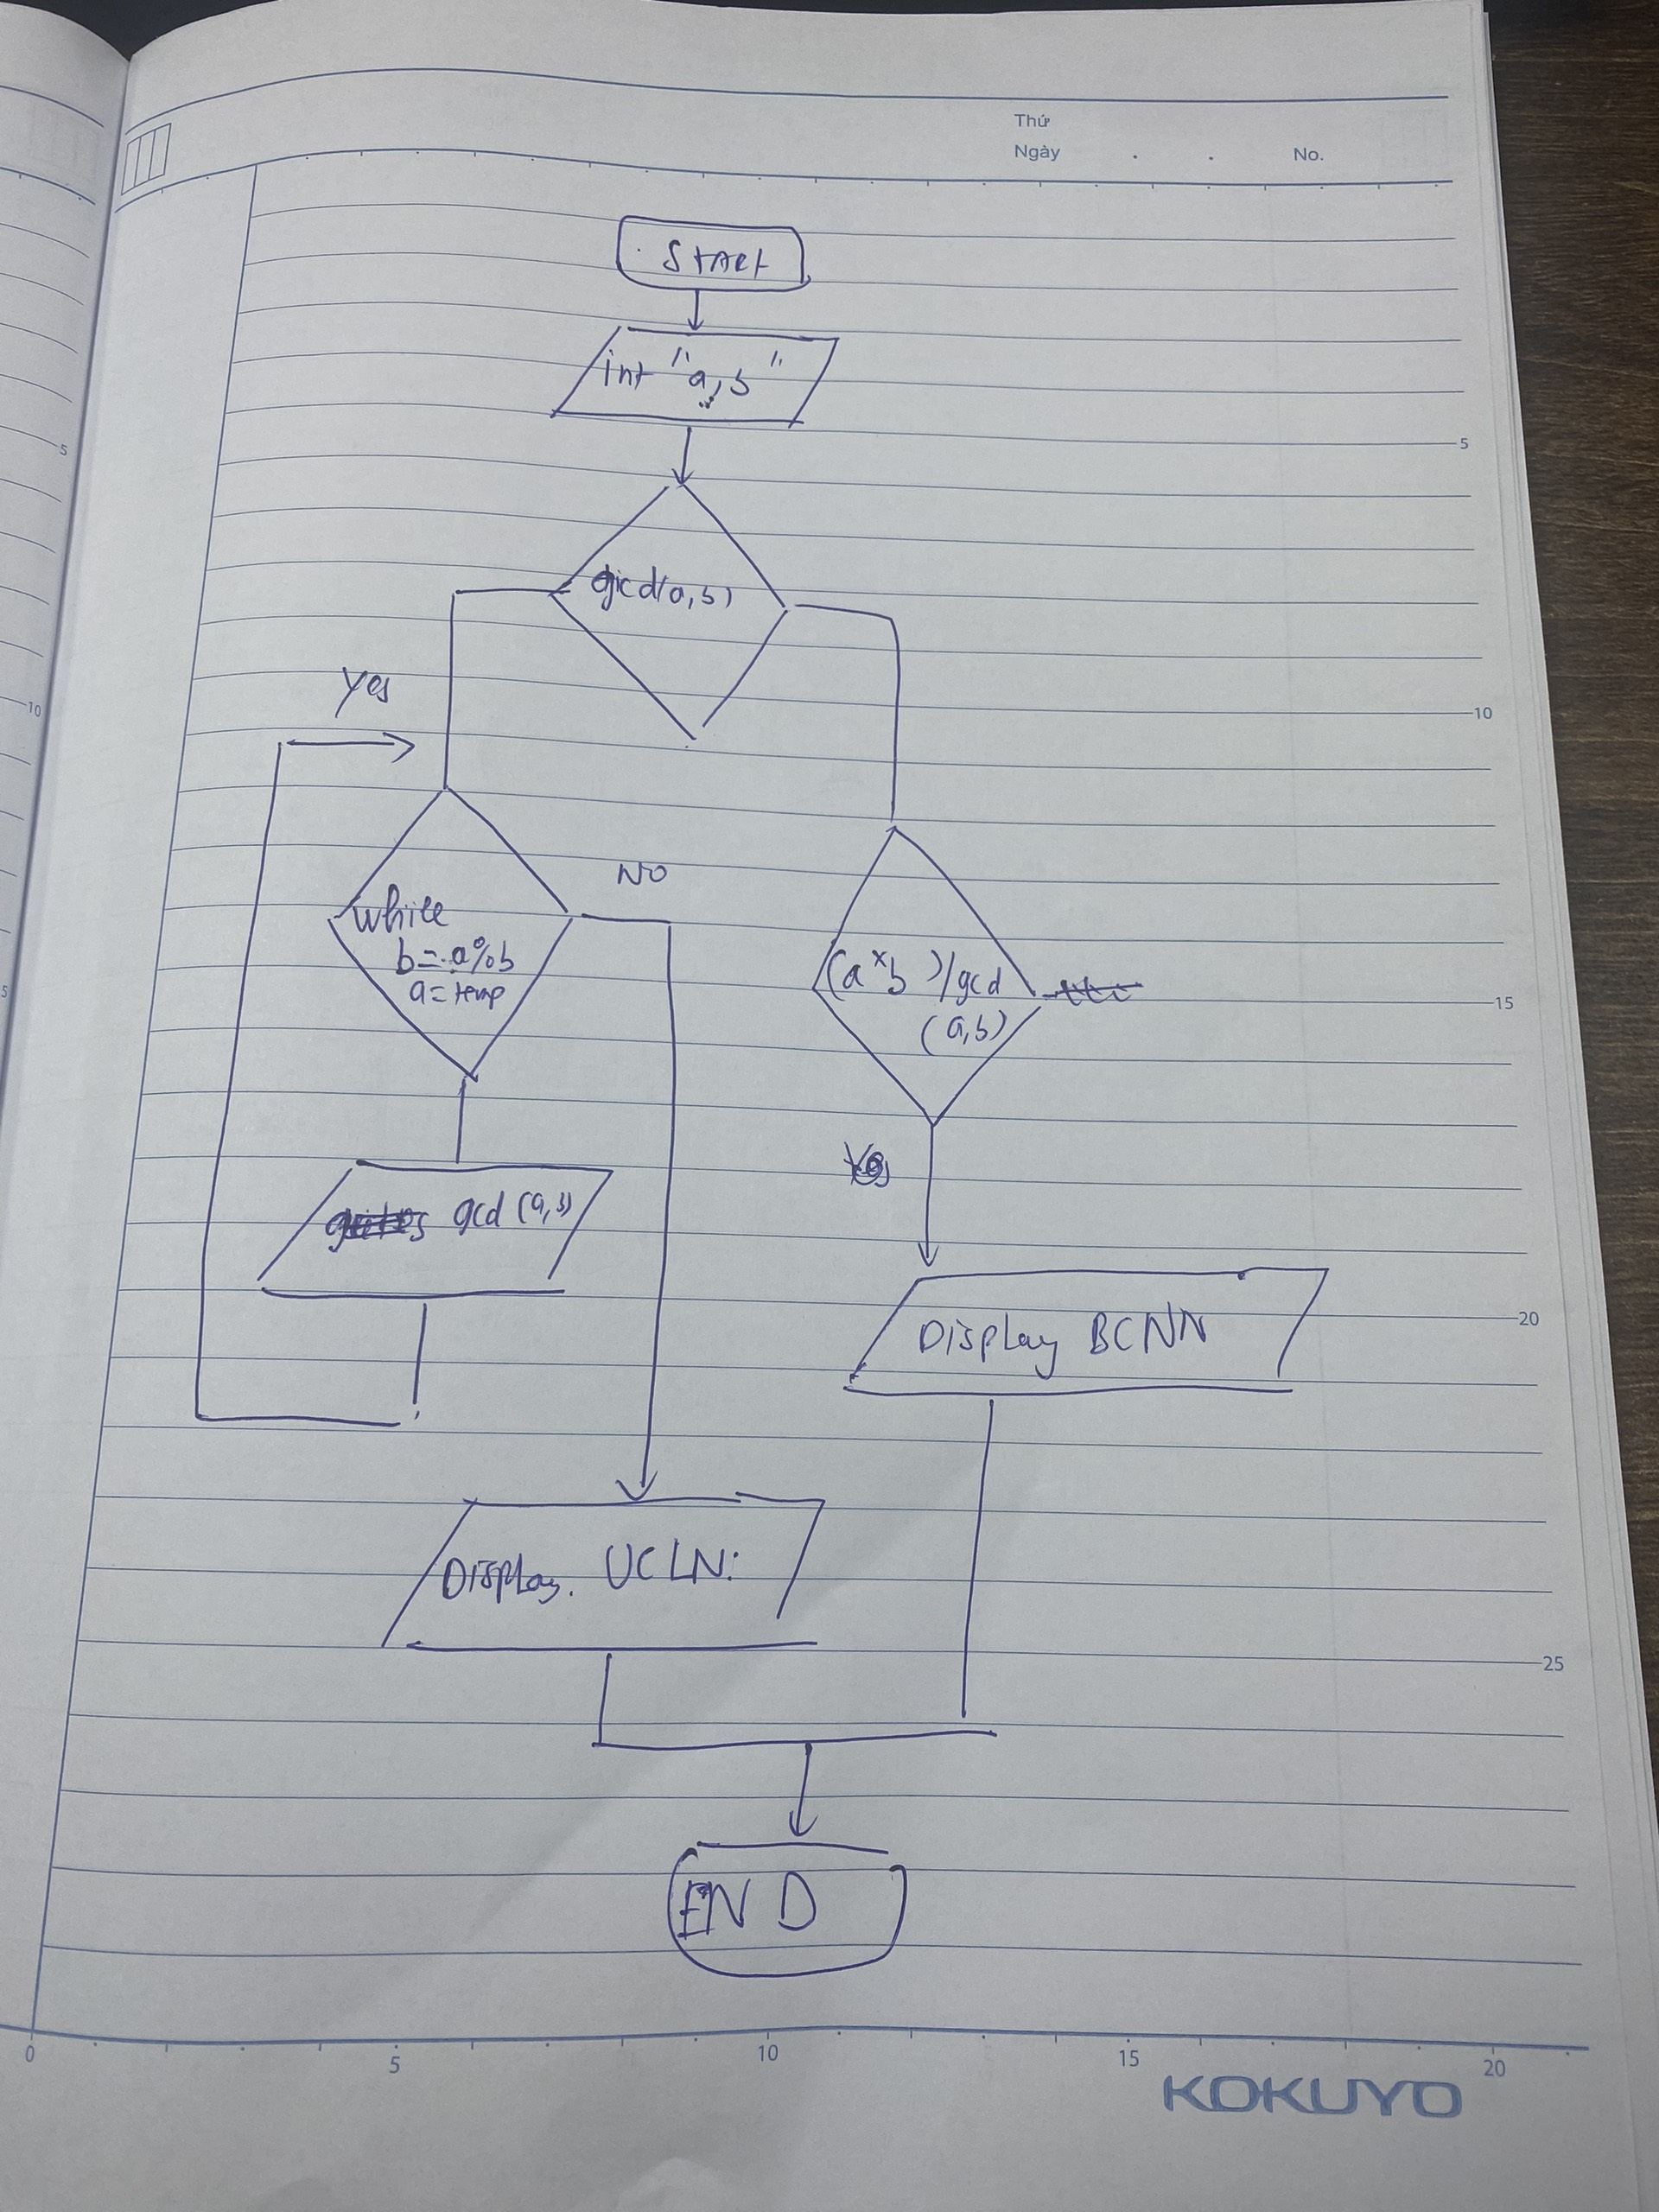 Thứ
Ngày . . No.
START
int "a,b"
gcd(a,b)
Yes
while
b = a%b
a = temp
NO
(a*b)/gcd
(a,b)
Yes
gcd (a,b)
Display BCNN
Display. UCLN:
END
5
10
15
20
25
5
10
0
5
10
15
20
KOKUYO